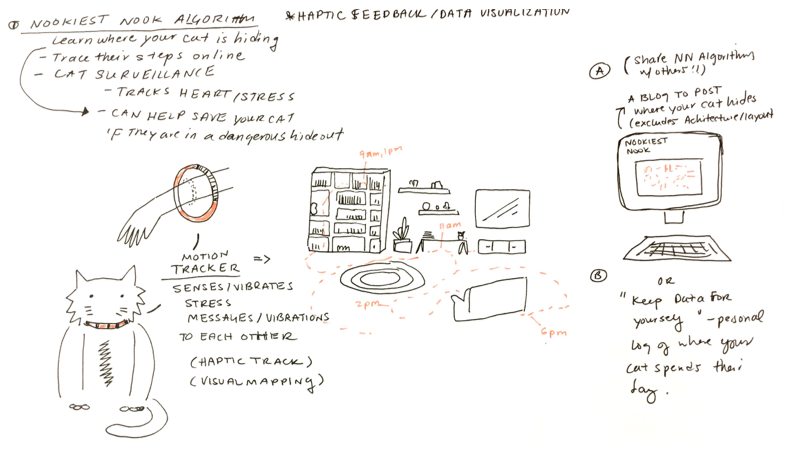 ① NOOKIEST NOOK ALGORITHM
*HAPTIC FEEDBACK/DATA VISUALIZATION
Learn where your cat is hiding
- Trace their steps online
- CAT SURVEILLANCE
- TRACKS HEART/STRESS
- CAN HELP SAVE YOUR CAT
IF They are in a dangerous hideout
MOTION
TRACKER =>
SENSES/VIBRATES
STRESS
MESSAGES/VIBRATIONS
TO EACH OTHER
(HAPTIC TRACK)
(VISUAL MAPPING)
9am, 1pm
11am
2pm
6pm
A
(Share NN Algorithm
w/others!!)
A BLOG TO POST
where your cat hides
(excludes Achitecture/layout
NOOKIEST
NOOK
B
OR
"Keep Data For
yourself" - personal
Log of where your
cat spends their
day.